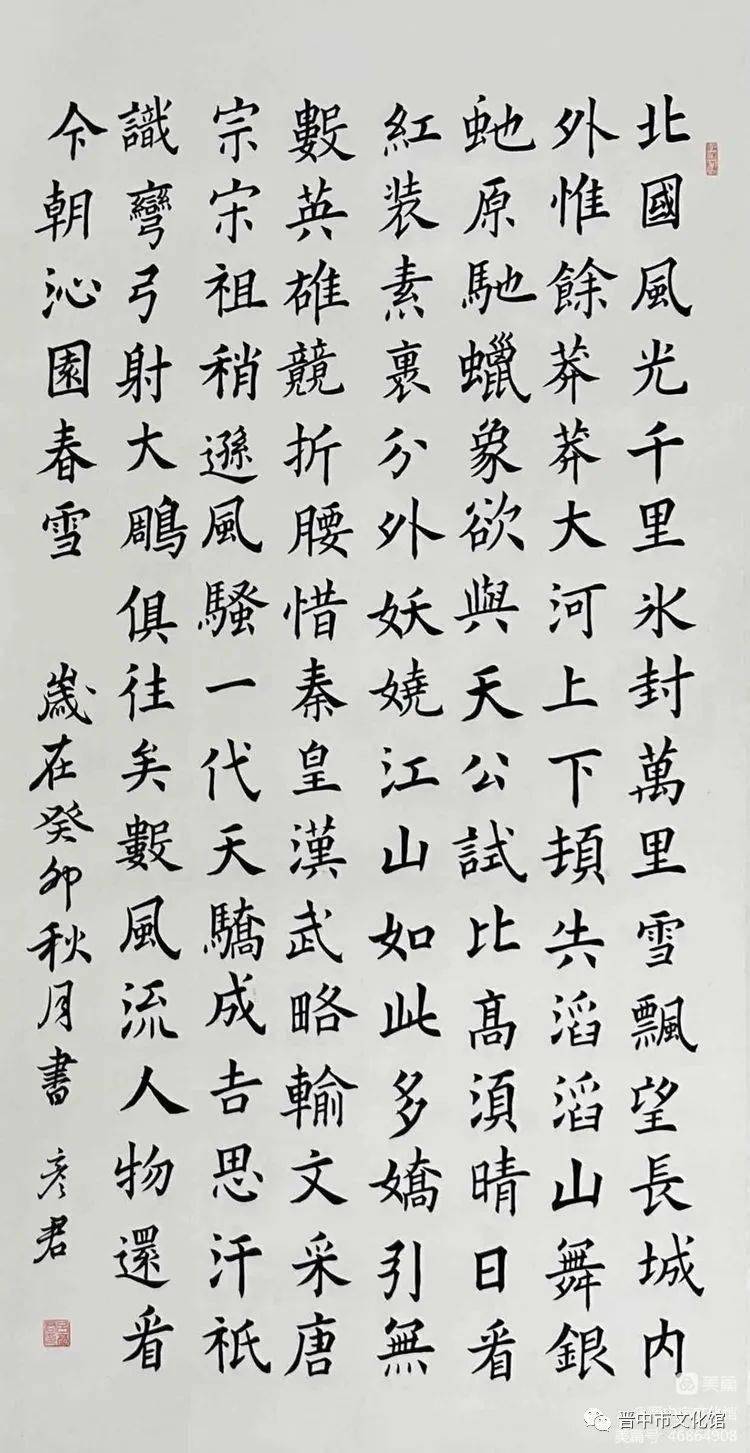 北國風光千里氷封萬里雪飄望長城内
外惟餘莽莽大河上下頓失滔滔山舞銀
虵原馳蠟象欲與天公試比髙湏晴日看
紅装素裹分外妖嬈江山如此多嬌引無
數英雄競折腰惜秦皇漢武略輸文采唐
宗宋祖稍遜風騷一代天驕成吉思汗祇
識彎弓射大鵰俱往矣數風流人物還看
今朝沁園春雪 歲在癸卯秋月書 彦君
美篇
晋中市文化馆
美篇号 46864908